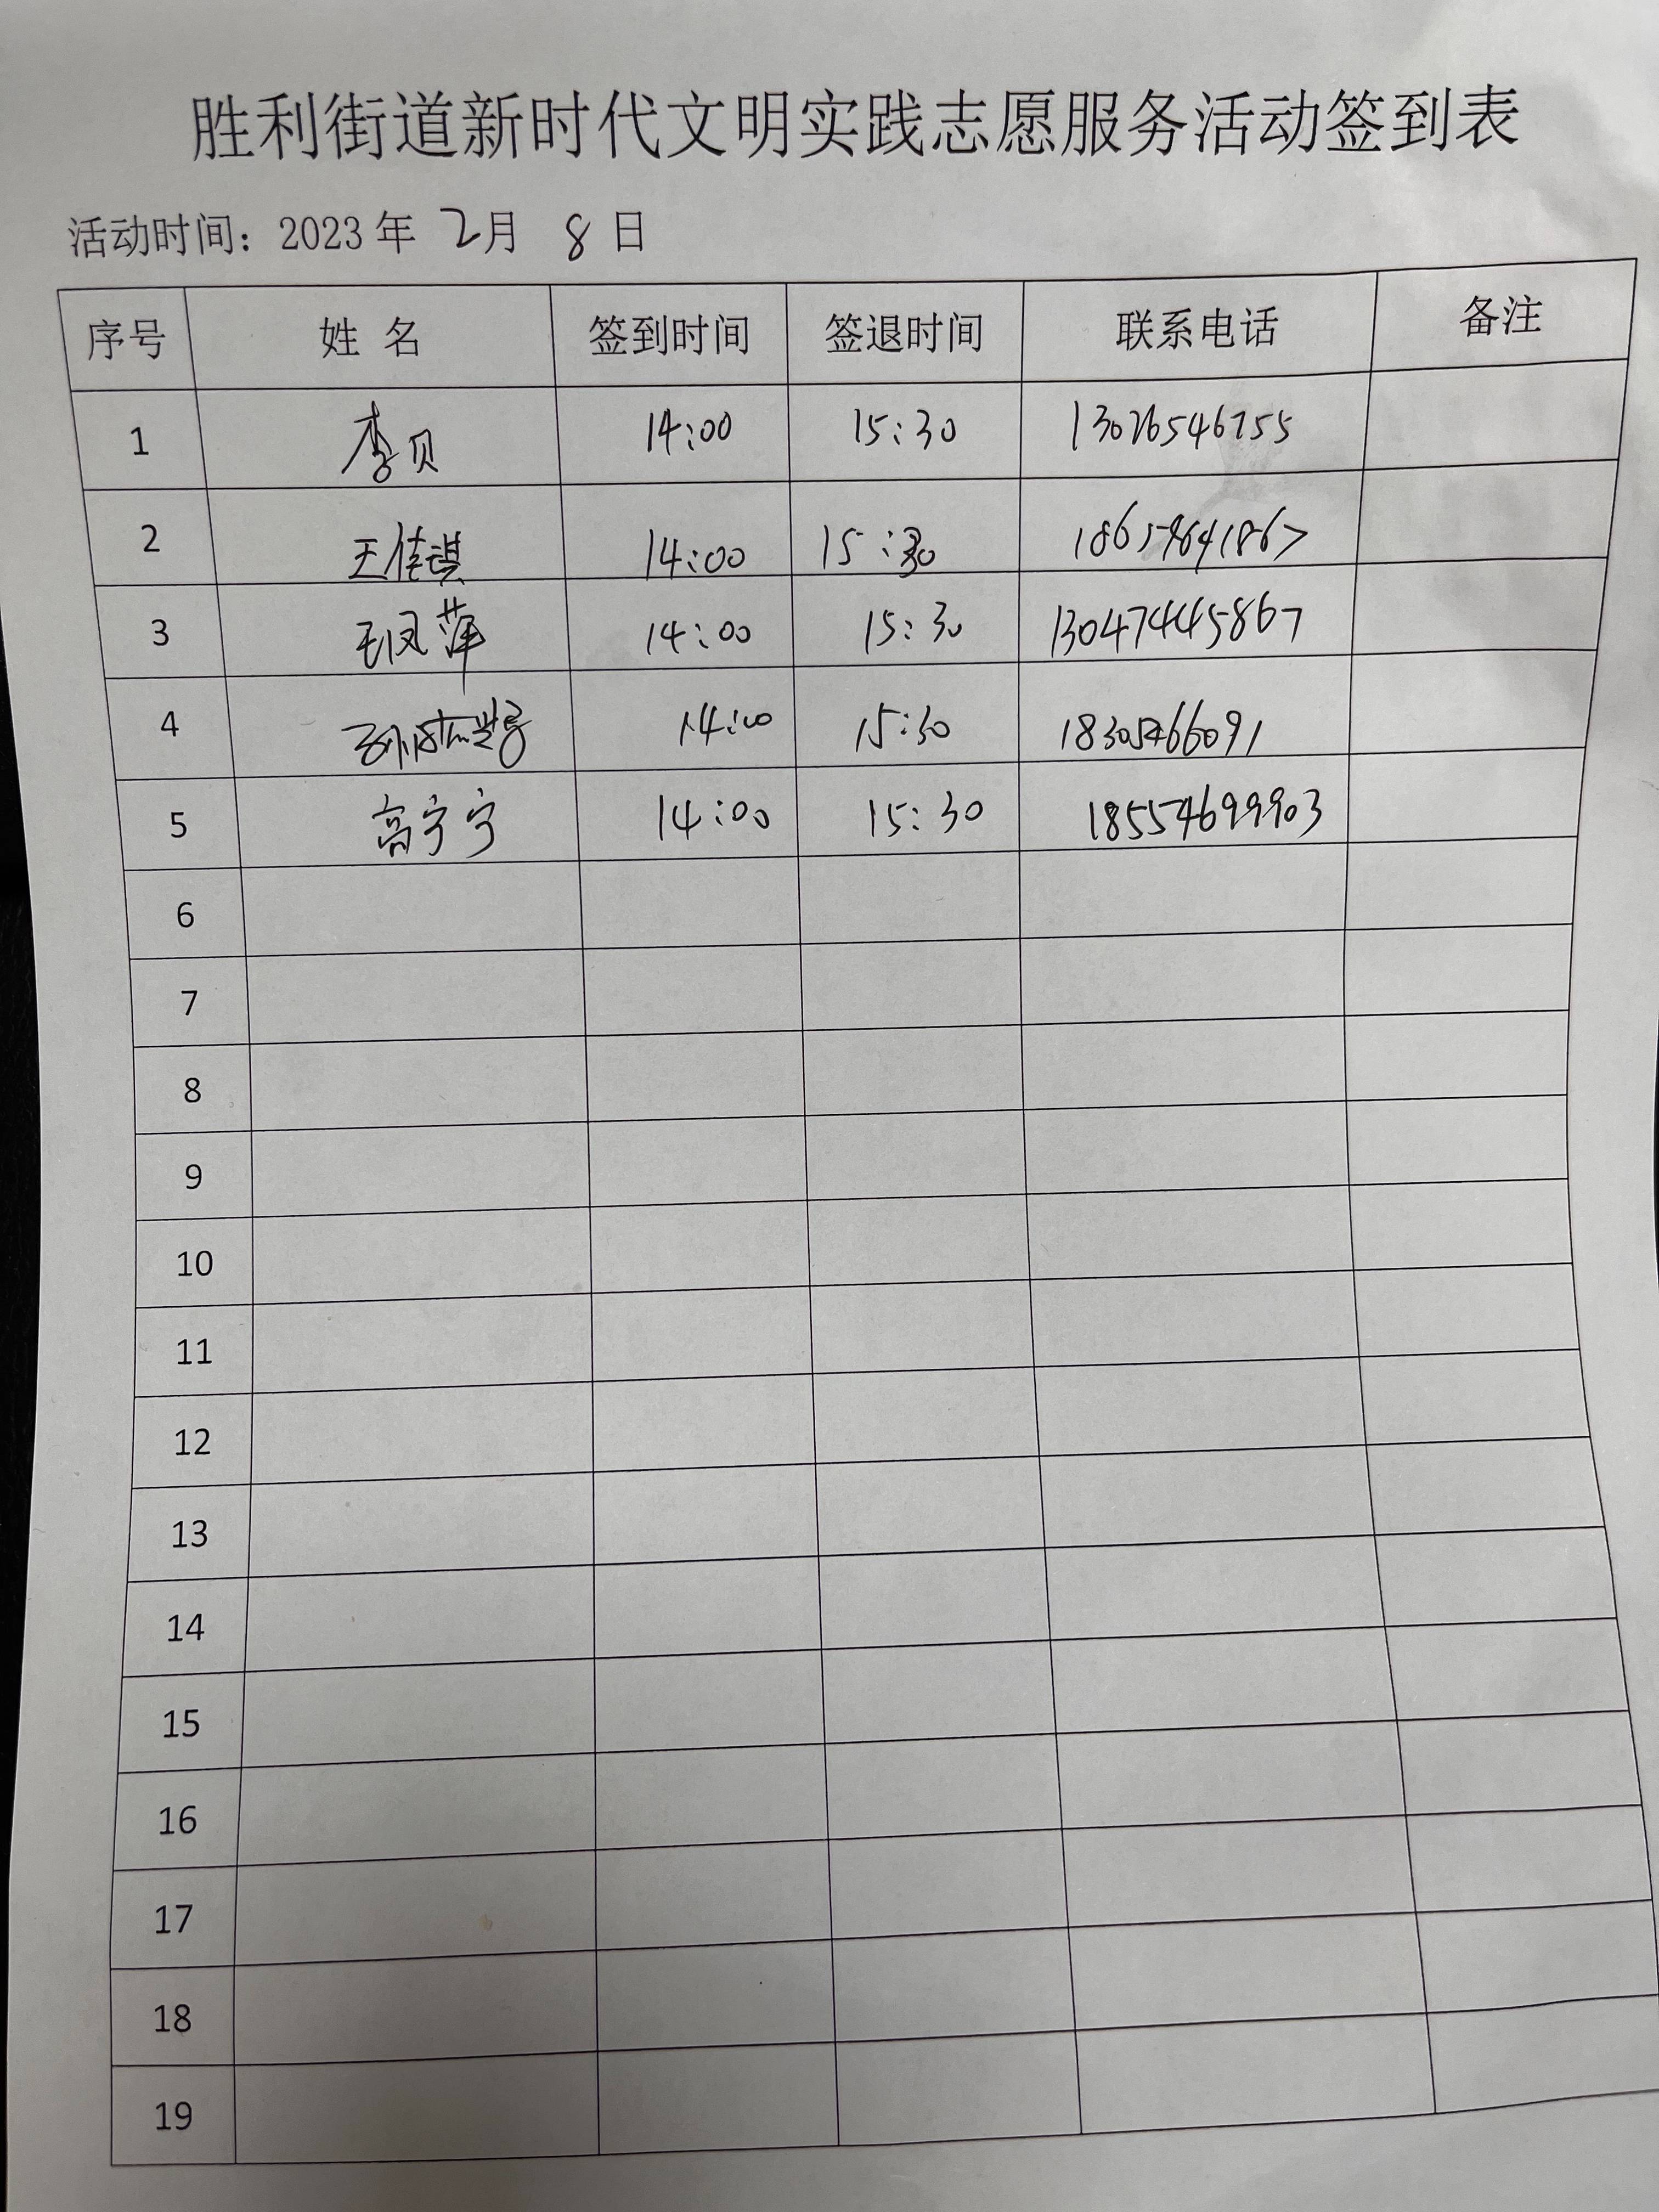 胜利街道新时代文明实践志愿服务活动签到表
活动时间：2023 年 2月 8 日
序号 姓 名 签到时间 签退时间 联系电话 备注
1 李贝 14:00 15:30 13026546755
2 王佳琪 14:00 15:30
3 王凤萍 14:00 15:30 13047445867
4 14:00 15:30 18305466091
5 高宁宁 14:00 15:30 18554699903
6
7
8
9
10
11
12
13
14
15
16
17
18
19